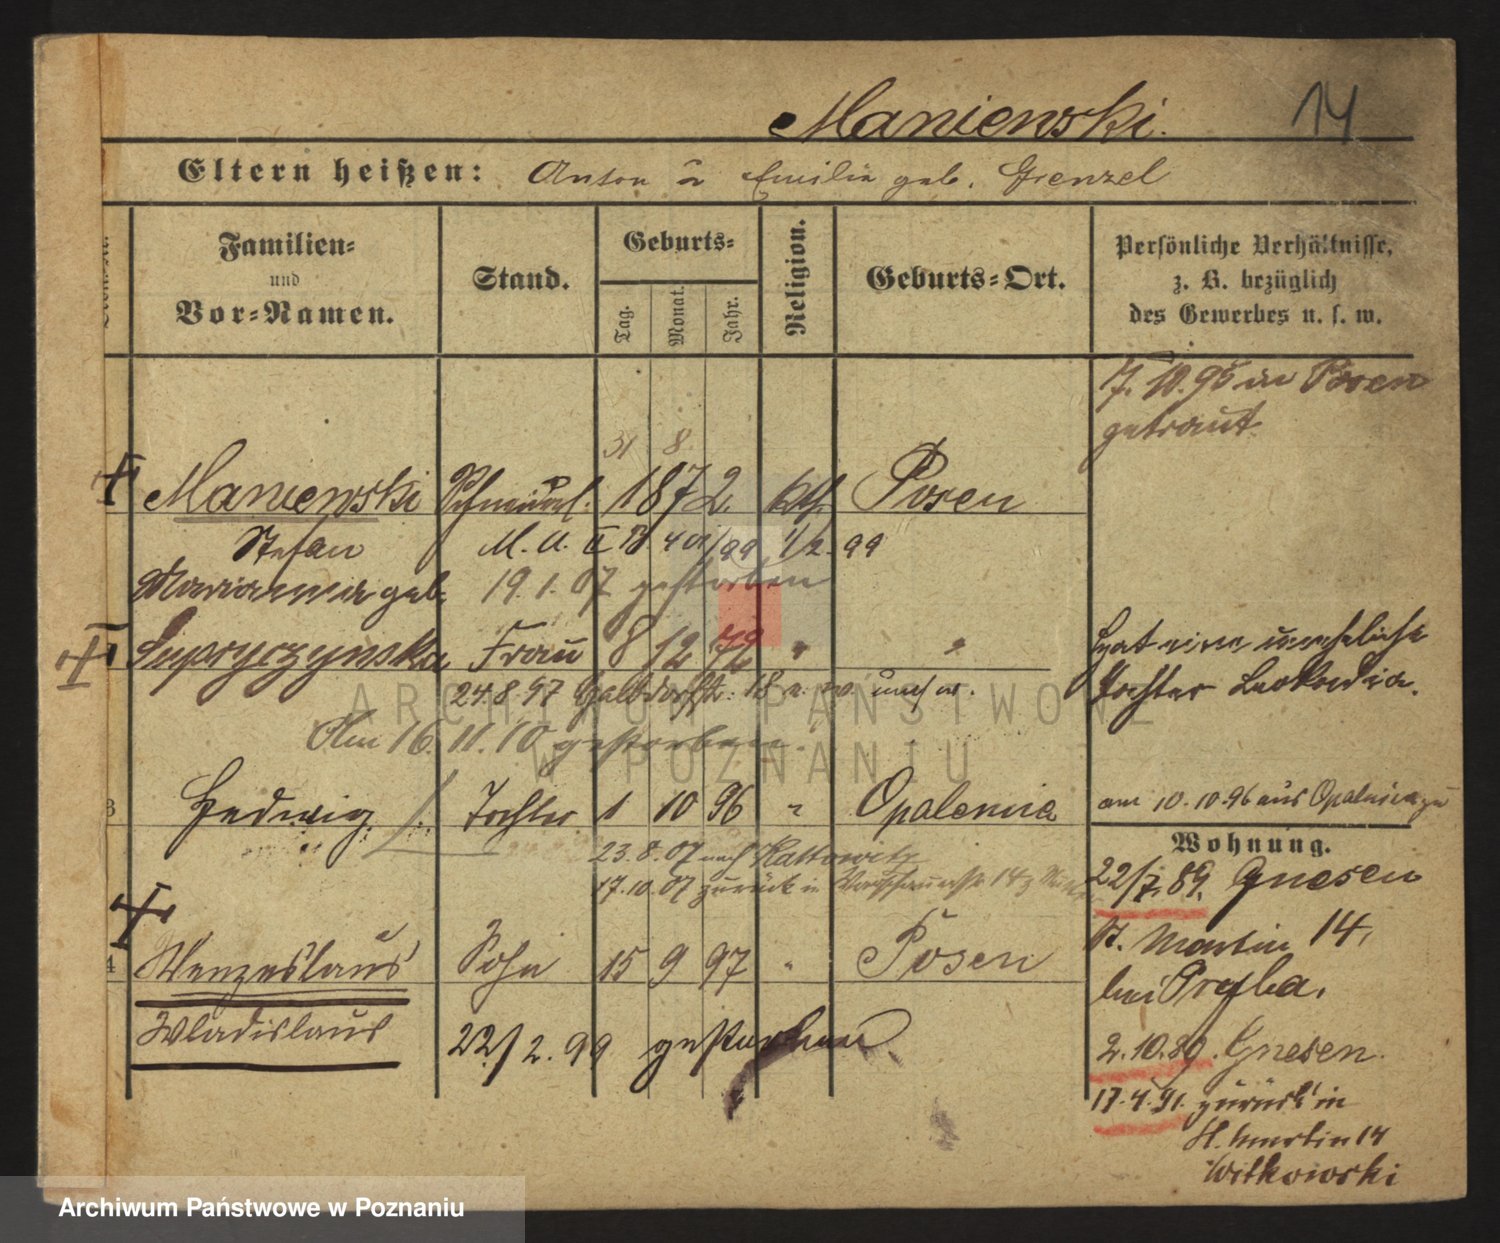 Maniewski. 14
Eltern heißen: Anton u Emilia geb. Grenzel
Familien-
und
Vor-Namen.
Stand.
Geburts-
Tag. Monat. Jahr.
Religion.
Geburts-Ort.
Persönliche Verhältnisse,
z. B. bezüglich
des Gewerbes u. s. w.
7. 10. 95 in Posen
getraut
31 8.
Maniewski 1872. kth. Posen
Stefan M. A. II B 401/99 1/2. 99
Marianna geb. 19. 1. 07 gestorben
Supryczynska Frau 8 12 72 " "
Hat eine uneheliche
Tochter Leokadia.
24.8.97 18
Am 16. 11. 10 gestorben
3 Hedwig Tochter 1 10 96 " Opalenica
am 10.10.96 aus Opalenica zu
23. 8. 07 nach Kattowitz
17. 10. 07 zurück in 14
Wohnung.
22/7. 89. Gnesen
St. Martin 14,
bei
4 Wenzeslaus Sohn 15 9 97 " Posen
Wladislaus 22/2. 99 gestorben
2. 10. 89. Gnesen.
17. 4. 91. zurück in
St. Martin 14
Witkowski
ARCHIWUM PAŃSTWOWE
W POZNANIU
Archiwum Państwowe w Poznaniu